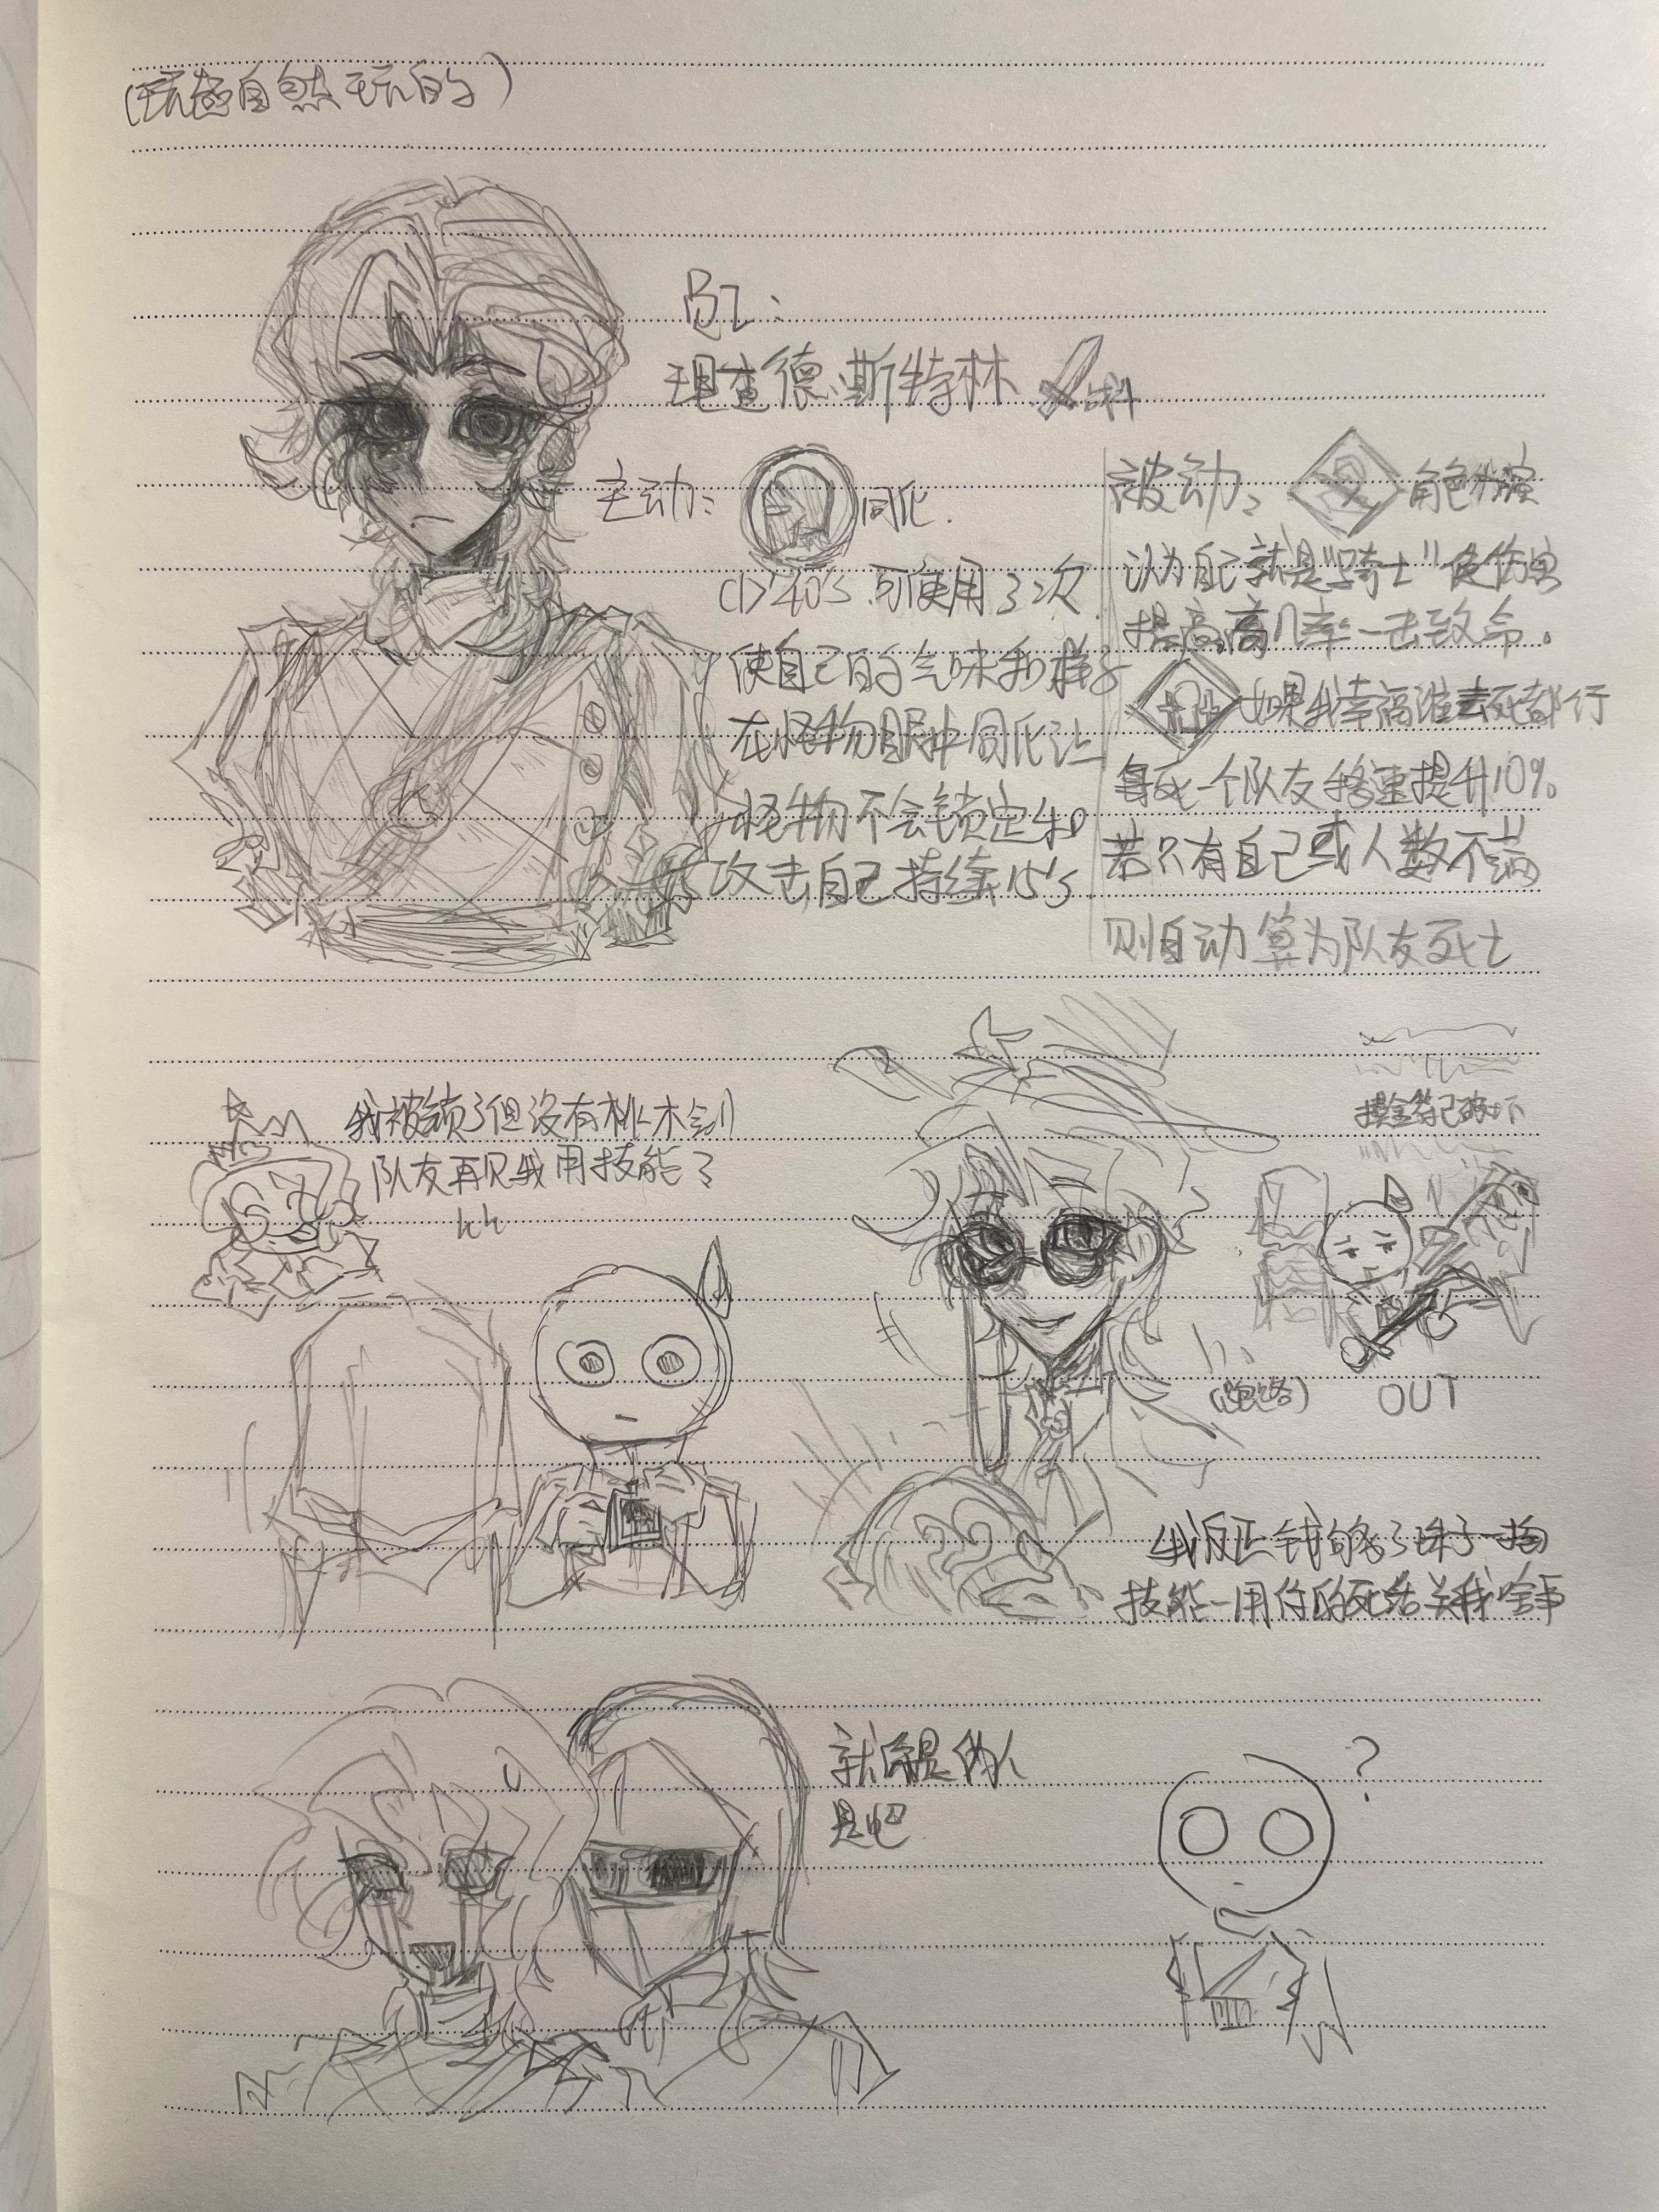 (玩感自然玩的)
BZ:
理查德.斯特林
主动: 同化.
CD40's.可使用3次.
使自己的气味和样子
在怪物眼中同化让
怪物不会锁定和
攻击自己持续15's.
被动: 角色扮演
认为自己就是"骑士"使伤害
提高,高几率一击致命.
如果我幸福谁去死都行
每死一个队友移速提升10%
若只有自己或人数不满
则自动算为队友死亡
我被锁了但没有桃木剑
队友再见我用技能了
hh
摸金符已破坏
(跑路)
OUT
我反正钱够了珠子一掏
技能一用你的死活关我啥事
就你是
是吧
?